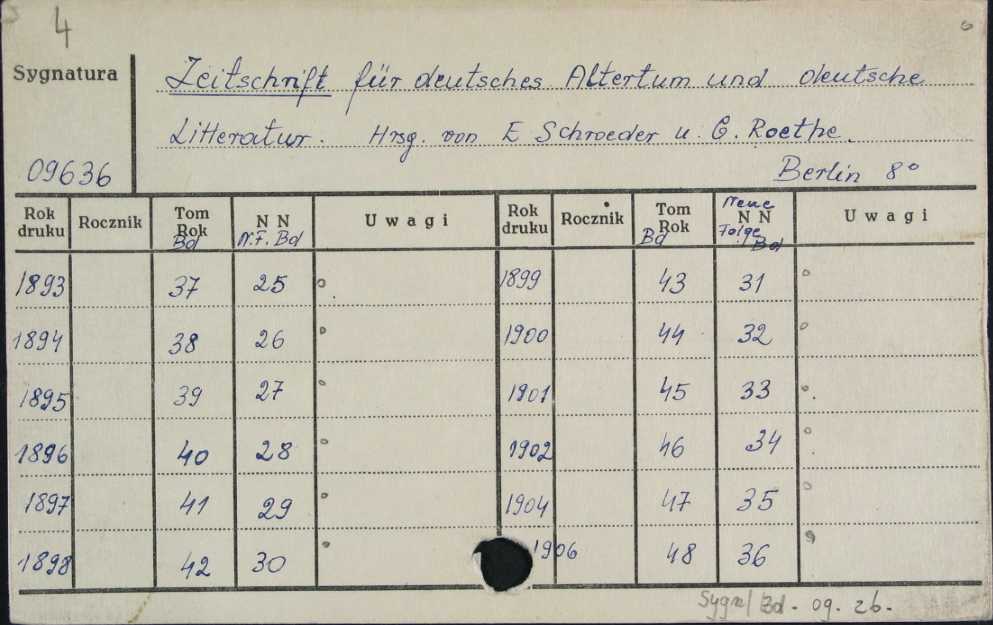 4
Sygnatura
Zeitschrift für deutsches Altertum und deutsche
Litteratur. Hrsg. von E Schroeder u. G. Roethe.
09636
Berlin 8°
Rok druku Rocznik Tom Rok Bd N N N.F. Bd Uwagi Rok druku Rocznik Tom Rok Bd Neue N N Folge Bd Uwagi
1893 37 25 1899 43 31
1894 38 26 1900 44 32
1895 39 27 1901 45 33
1896 40 28 1902 46 34
1897 41 29 1904 47 35
1898 42 30 1906 48 36
Bd. 09. 26.